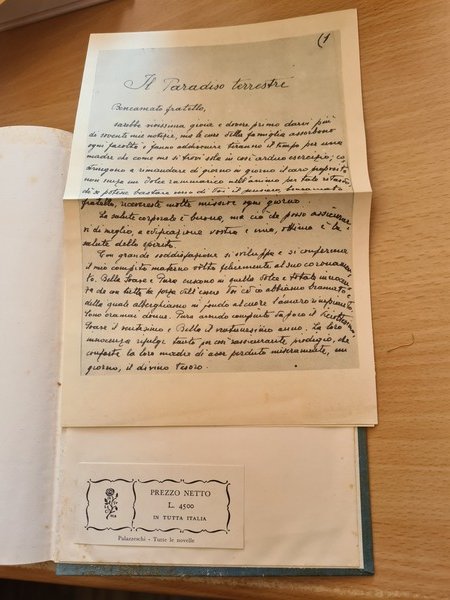 (1
Il Paradiso terrestre
Beneamato fratello,
sarebbe vivissima gioia e dovere primo darvi più
di sovente mie notizie, ma le cure della famiglia assorbono
ogni facoltà e fanno addivenire tiranno il tempo per una
madre che come me si trovi sola in così arduo esercizio; co
stringono a rimandare di giorno in giorno il caro proposito
non senza un dolce rammarico nell'animo per tale ritardo,
di potesse bastare verso di Voi il pensiero, beneamato
fratello, ricevereste molte missive ogni giorno.
La salute corporale è buona, ma ciò che posso assicurar
vi di meglio, a edificazione vostra e mia, ottima è la
salute dello spirito.
Con grande soddisfazione si sviluppa e si conferma
il mio compito materno volto felicemente al suo coronamen
to. Bella Soave e Pura crescono in quella dolce e totale innocen
za da cui
della quale alberghiamo in fondo al cuore l'amaro rimpianto.
Sono oramai donne. Pura avendo compiuto da poco il
Soave il ventesimo e Bella il ventunesimo anno. La loro
innocenza rifulge tanto per così rassicurante prodigio, che
conforta la loro madre di aver perduto miseramente, un
giorno, il divino tesoro.
PREZZO NETTO
L. 4500
IN TUTTA ITALIA
Palazzeschi - Tutte le novelle